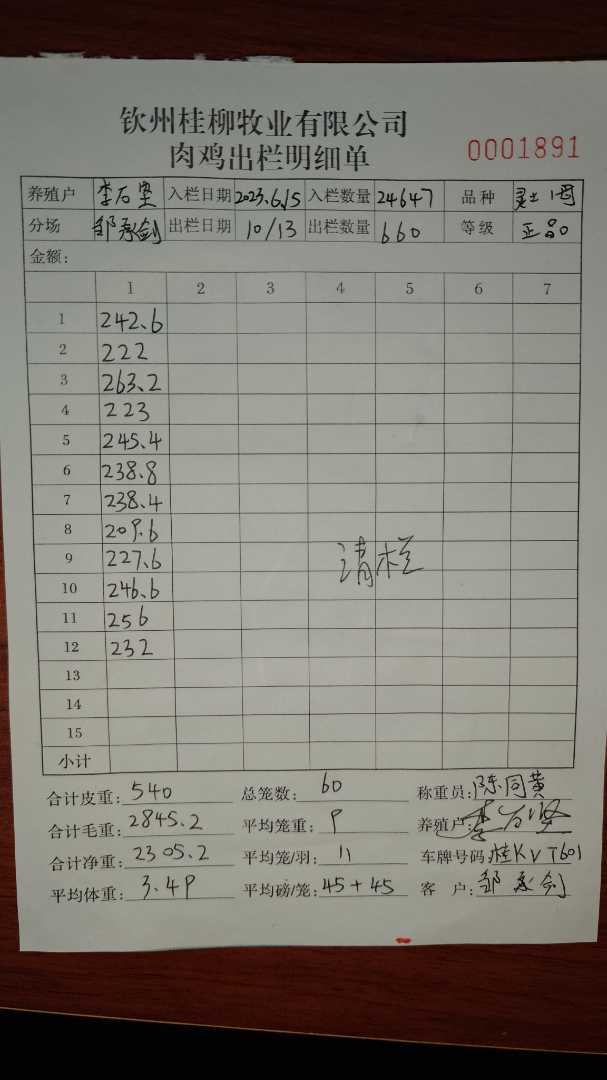 钦州桂柳牧业有限公司
肉鸡出栏明细单 0001891
养殖户 李石坚 入栏日期 2023.6.15 入栏数量 24647 品种
分场 邹承剑 出栏日期 10/13 出栏数量 660 等级 正品
金额:
1 2 3 4 5 6 7
1 242.6
2 222
3 263.2
4 223
5 245.4
6 238.8
7 238.4
8 209.6
9 227.6 清栏
10 246.6
11 256
12 232
13
14
15
小计
合计皮重: 540 总笼数: 60 称重员: 陈同黄
合计毛重: 2845.2 平均笼重: 9 养殖户: 李石坚
合计净重: 2305.2 平均笼/羽: 11 车牌号码 桂KVT601
平均体重: 3.49 平均磅/笼: 45+45 客 户: 邹承剑